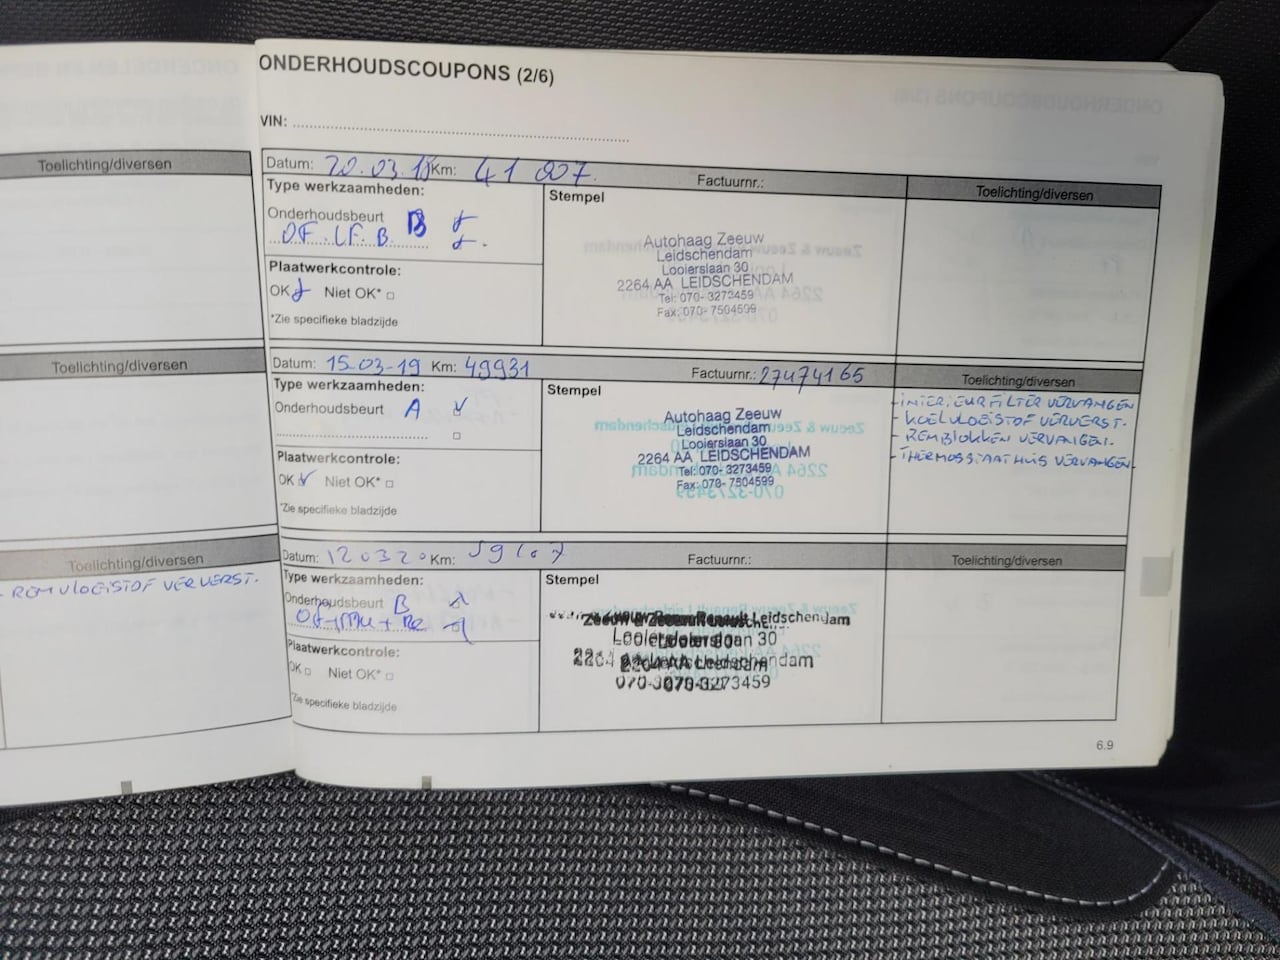 ONDERHOUDSCOUPONS (2/6)
VIN:
Toelichting/diversen
Toelichting/diversen
Toelichting/diversen
- REMVLOEISTOF VERVERST.
Datum: 20.03.18 Km: 41 007. Factuurnr.: Toelichting/diversen
Type werkzaamheden:
Onderhoudsbeurt B
OF. LF. B.
Plaatwerkcontrole:
OK Niet OK*
*Zie specifieke bladzijde
Stempel
Autohaag Zeeuw
Leidschendam
Looierslaan 30
2264 AA LEIDSCHENDAM
Tel: 070-3273459
Fax: 070-7504599
Datum: 15-03-19 Km: 49931 Factuurnr.: 27474165 Toelichting/diversen
Type werkzaamheden:
Onderhoudsbeurt A
Plaatwerkcontrole:
OK Niet OK*
*Zie specifieke bladzijde
Stempel
Autohaag Zeeuw
Leidschendam
Looierslaan 30
2264 AA LEIDSCHENDAM
Tel: 070-3273459
Fax: 070-7504599
- INTERIEURFILTER VERVANGEN
- KOELVLOEISTOF VERVERST.
- REMBLOKKEN VERVANGEN.
- THERMOSSTAATHUIS VERVANGEN
Datum: 120320 Km: Factuurnr.: Toelichting/diversen
Type werkzaamheden:
Onderhoudsbeurt B
Plaatwerkcontrole:
OK Niet OK*
*Zie specifieke bladzijde
Stempel
Leidschendam
30
Leidschendam
273459
6.9